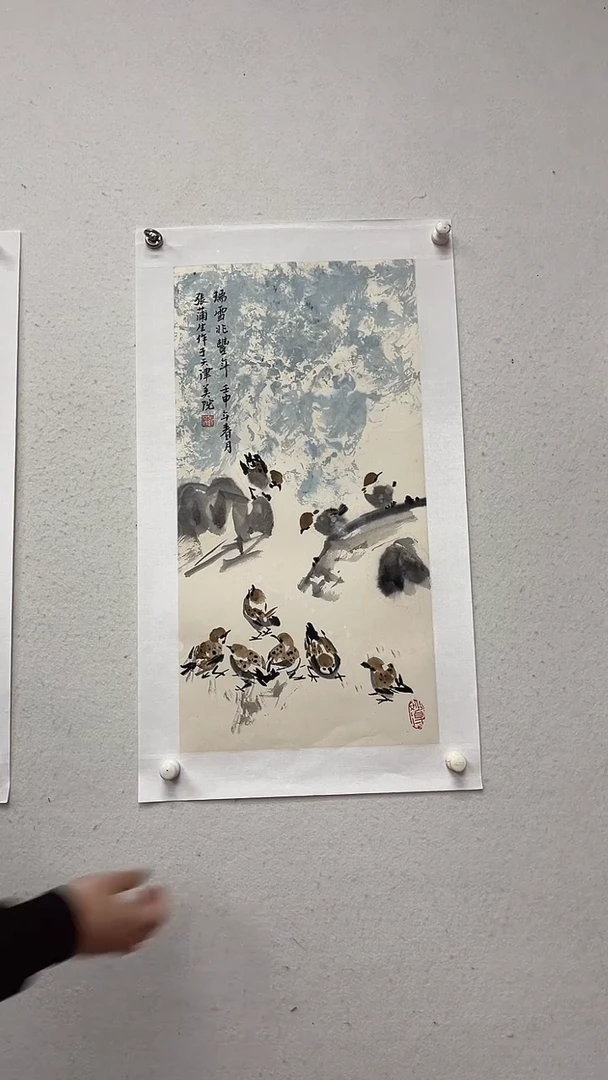 瑞雪兆豐年 壬申年春月
張蒲生作于天津美院